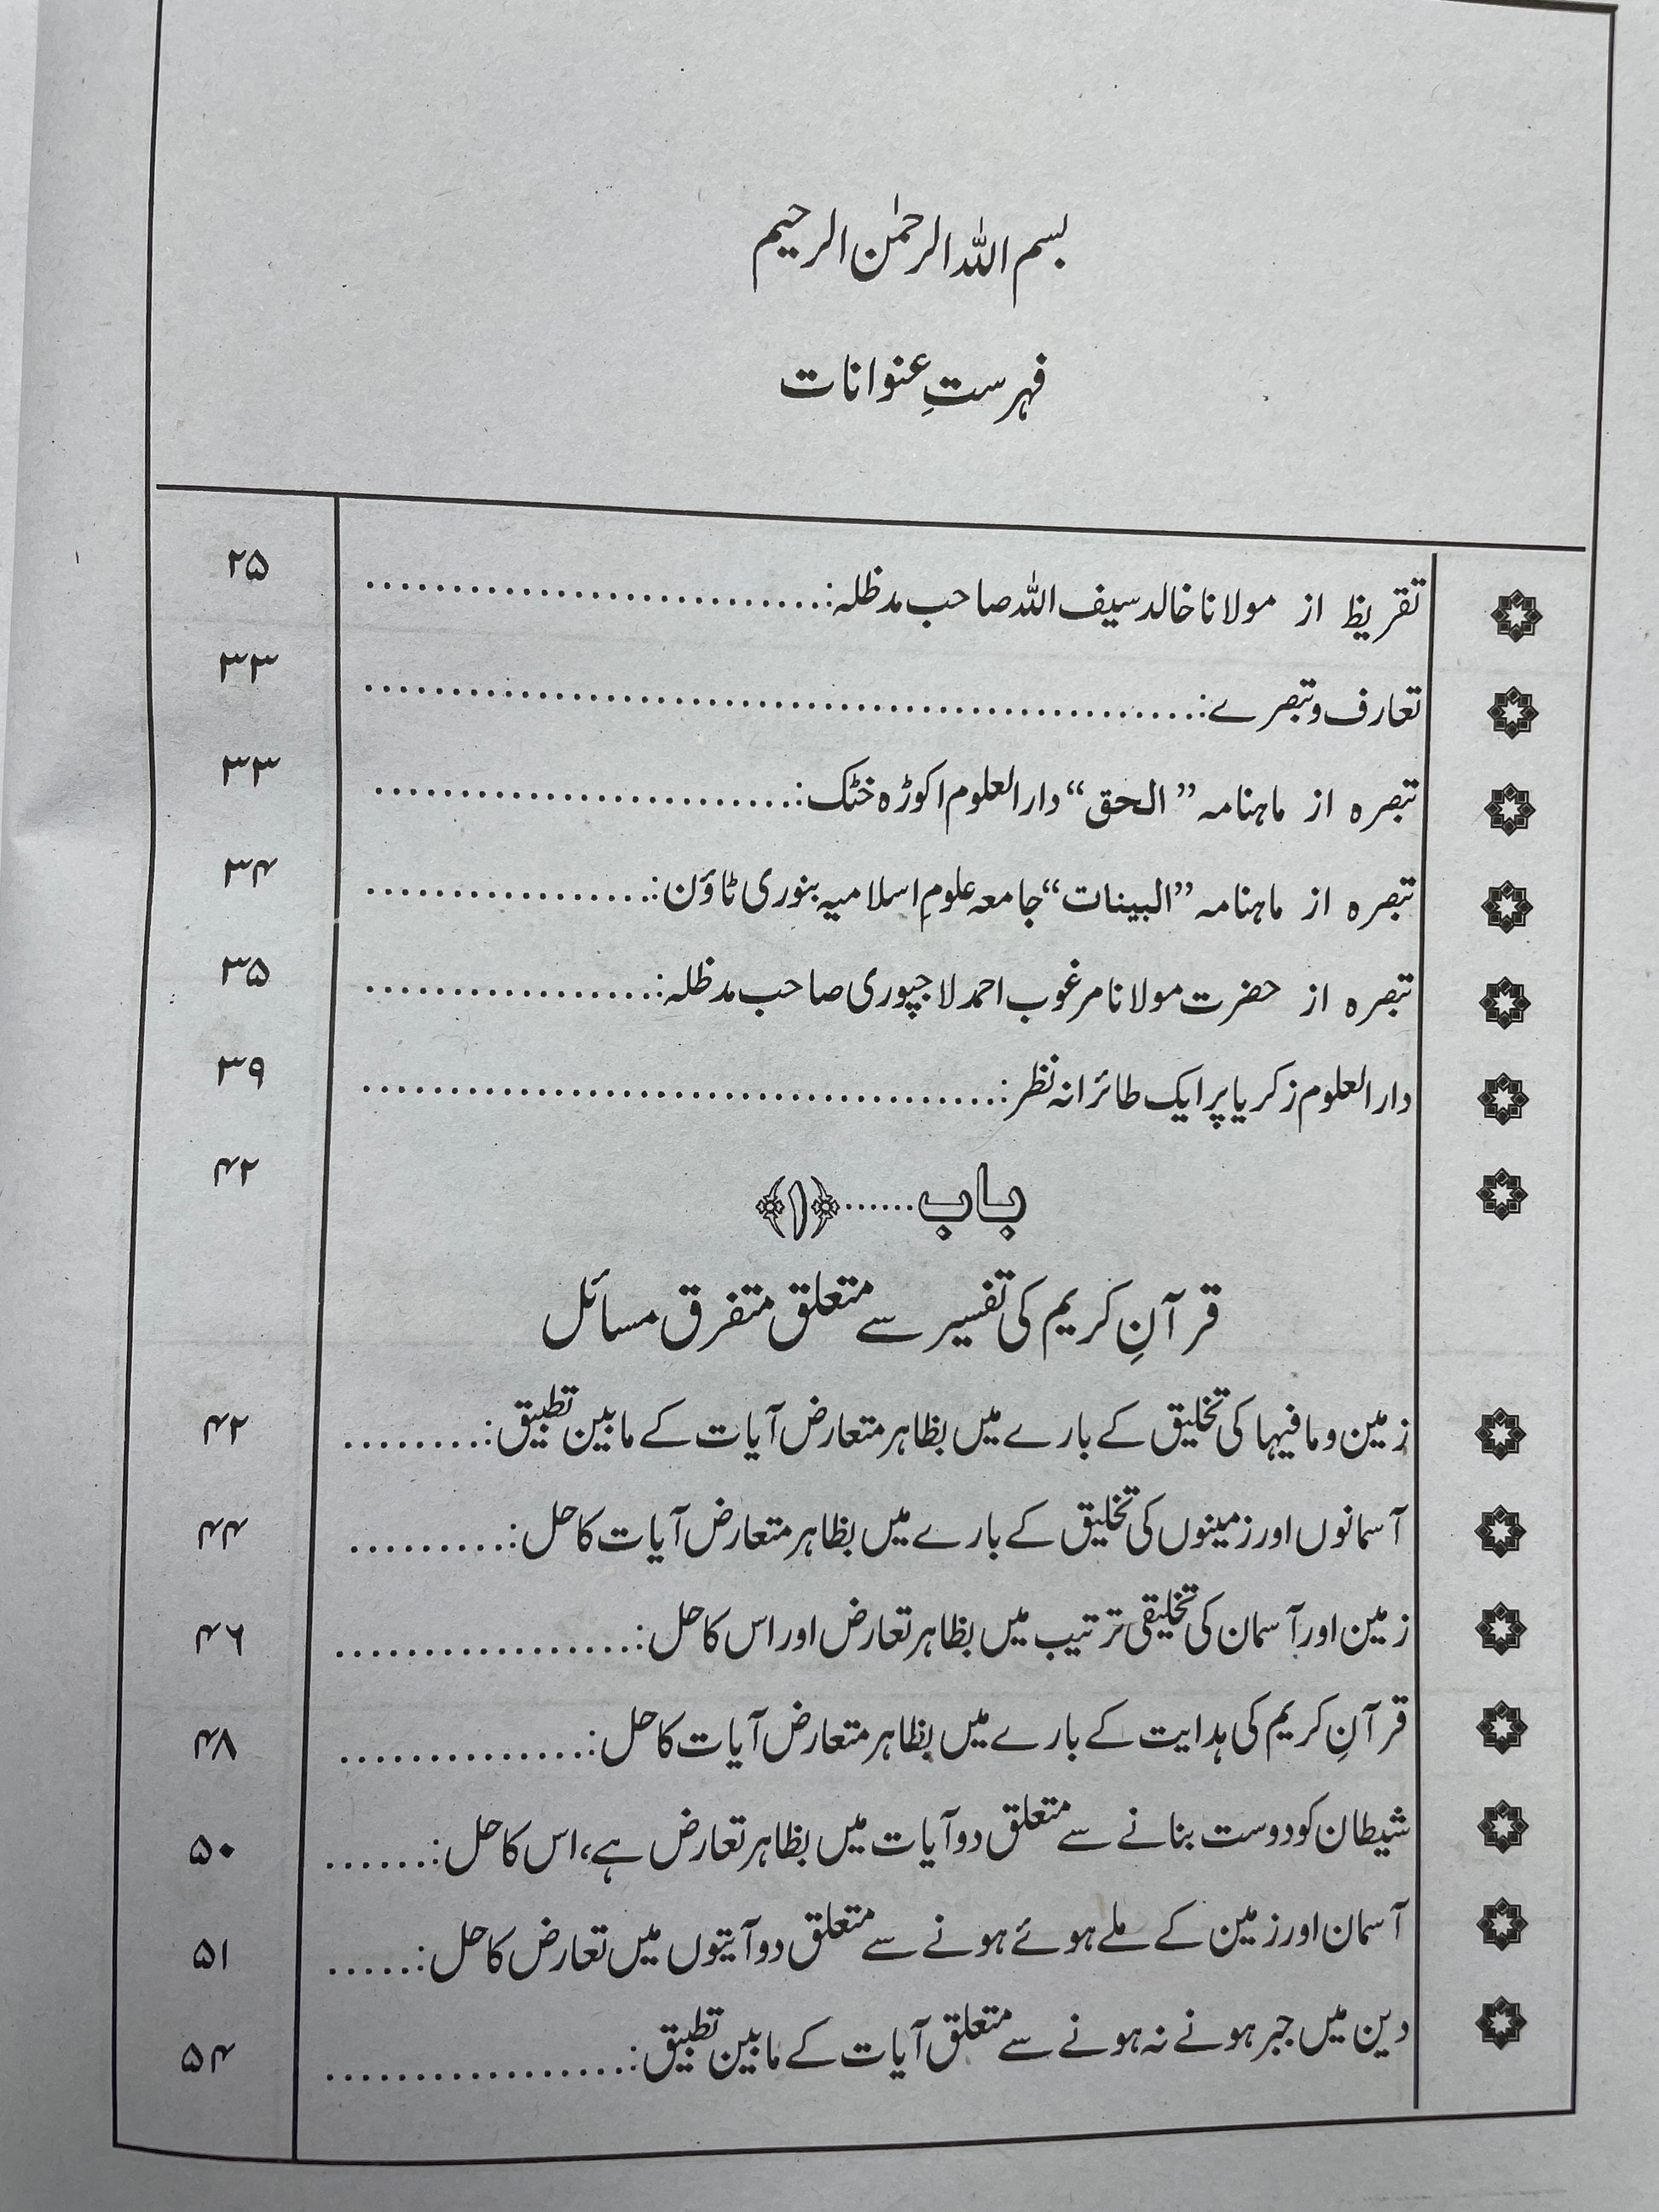 بسم اللہ الرحمٰن الرحیم
فہرستِ عنوانات
تقریظ از مولانا خالد سیف اللہ صاحب مدظلہ:.............................. ۲۵
تعارف و تبصرے:.............................. ۳۳
تبصرہ از ماہنامہ ”الحق“ دارالعلوم اکوڑہ خٹک:.............................. ۳۳
تبصرہ از ماہنامہ ”البینات“ جامعہ علومِ اسلامیہ بنوری ٹاؤن:.................... ۳۴
تبصرہ از حضرت مولانا مرغوب احمد لاجپوری صاحب مدظلہ:.................... ۳۵
دارالعلوم زکریا پر ایک طائرانہ نظر:.............................. ۳۹
باب......﴿۱﴾ ۴۲
قرآنِ کریم کی تفسیر سے متعلق متفرق مسائل
زمین و مافیہا کی تخلیق کے بارے میں بظاہر متعارض آیات کے مابین تطبیق:......... ۴۲
آسمانوں اور زمینوں کی تخلیق کے بارے میں بظاہر متعارض آیات کا حل:.......... ۴۴
زمین اور آسمان کی تخلیقی ترتیب میں بظاہر تعارض اور اس کا حل:.................. ۴۶
قرآنِ کریم کی ہدایت کے بارے میں بظاہر متعارض آیات کا حل:............... ۴۸
شیطان کو دوست بنانے سے متعلق دو آیات میں بظاہر تعارض ہے، اس کا حل:...... ۵۰
آسمان اور زمین کے ملے ہوئے ہونے سے متعلق دو آیتوں میں تعارض کا حل:...... ۵۱
دین میں جبر ہونے نہ ہونے سے متعلق آیات کے مابین تطبیق:.................. ۵۴